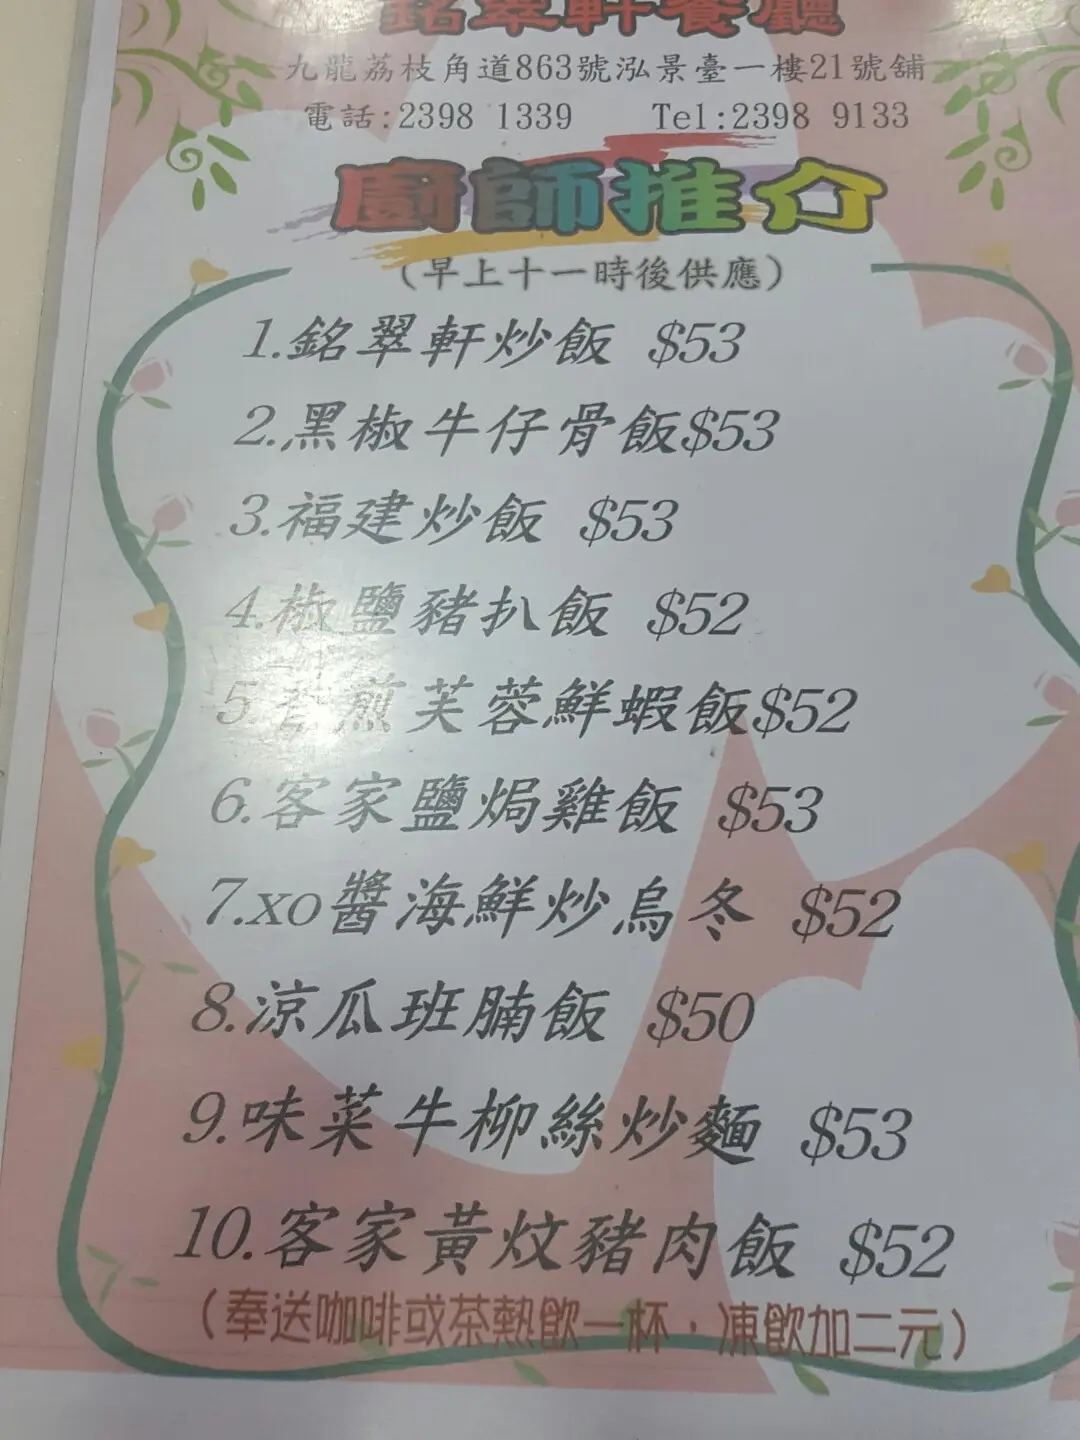 銘翠軒餐廳
九龍荔枝角道863號泓景臺一樓21號舖
電話:2398 1339 Tel:2398 9133
廚師推介
(早上十一時後供應)
1.銘翠軒炒飯 $53
2.黑椒牛仔骨飯$53
3.福建炒飯 $53
4.椒鹽豬扒飯 $52
5.香煎芙蓉鮮蝦飯$52
6.客家鹽焗雞飯 $53
7.xo醬海鮮炒烏冬 $52
8.涼瓜班腩飯 $50
9.味菜牛柳絲炒麵 $53
10.客家黃炆豬肉飯 $52
(奉送咖啡或茶熱飲一杯，凍飲加二元)